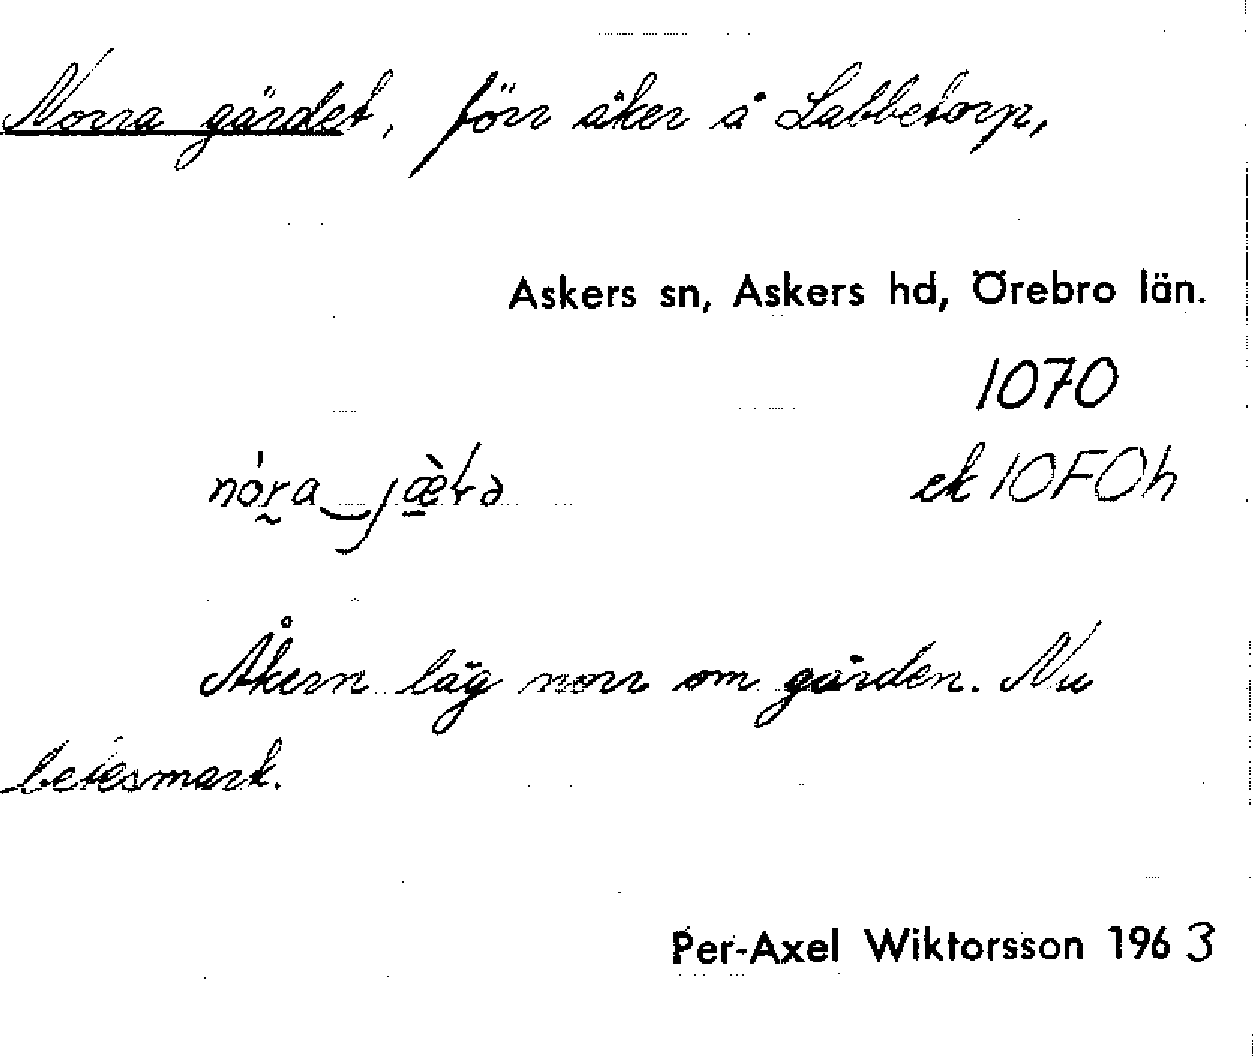 Norra gärdet, förr åker å Labbetorp,
Askers sn, Askers hd, Örebro län.
1070
ek 10F0h
Åkern låg norr om gården. Nu
betesmark.
Per-Axel Wiktorsson 1963